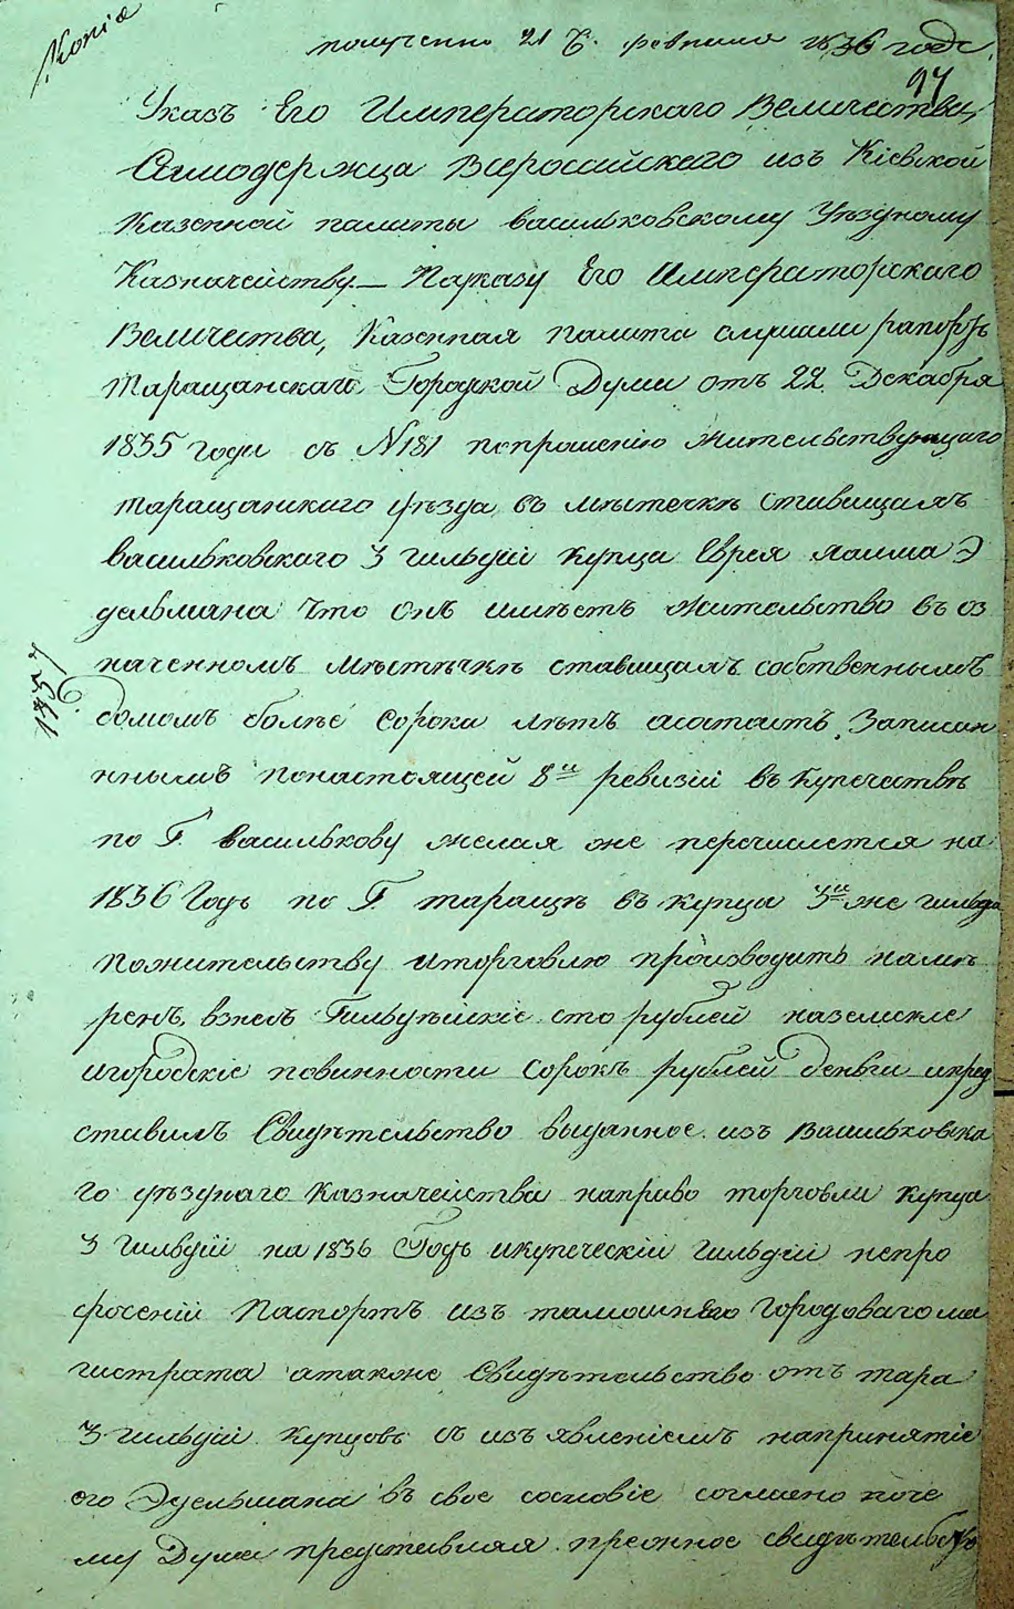 Копія
получено 21 Ч. февраля 1836 года.
97
Указъ Его Императорскаго Величества,
Самодержца Всероссійскаго изъ Кіевской
Казенной палаты васильковскому Уѣздному
Казначейству. — Поуказу Его Императорскаго
Величества, Казенная Палата слушали рапортъ
Таращанскаго Городской Думы отъ 22 Декабря
1835 года съ N 181 попрошенію жительствующаго
таращанскаго уѣзда въ мѣстечкѣ ставищахъ
васильковскаго 3 гильдіи купца Еврея Э
дельмана что онъ имѣетъ жительство въ оз
наченномъ Мѣстѣчкѣ ставищахъ собственнымъ
домомъ болѣе сорока лѣтъ асостоитъ Записан
ннымъ понастоящей 8й ревизіи въ купечествѣ
по Г. Василькову желая же перечислется на
1836 Годъ по Г. таращѣ въ купцы 3й же гильди
пожительству иторговлю производить намѣ
ренъ, взнелъ Гильдѣйскіе сто рублей наземскіе
игородскіе повинности сорокъ рублей деньги ипред
ставилъ Свидѣтельство выданное изъ Васильковска
го уѣзднаго Казначейства направо торговли купца
3 Гильдіи на 1836 Годъ икупеческій гильдіи непро
сроченій Паспортъ изъ тамошнего Городоваго ма
гистрата атакже свидѣтельство отъ тара
3 гильдіи купцовъ съ изъявленіемъ напринятіе
его Эдельмана въ свое сословіе согласно поче
му Дума представляя преонное свидѣтельство
1357